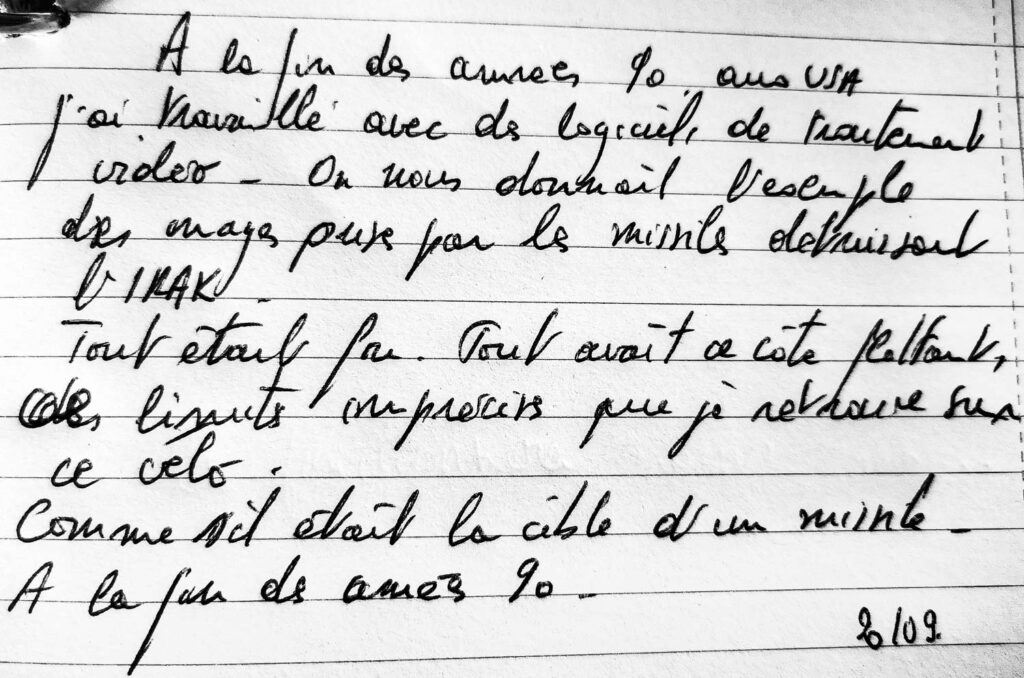 A la fin des années 90, aux USA
j'ai travaillé avec des logiciels de traitement
video - On nous donnait l'exemple
des images prises par les missiles detruisant
l'IRAK.
Tout était fou. Tout avait ce côté flottant,
des limites imprecises que je retrouve sur
ce vélo.
Comme s'il était la cible d'un missile -
A la fin des années 90 -
/09.